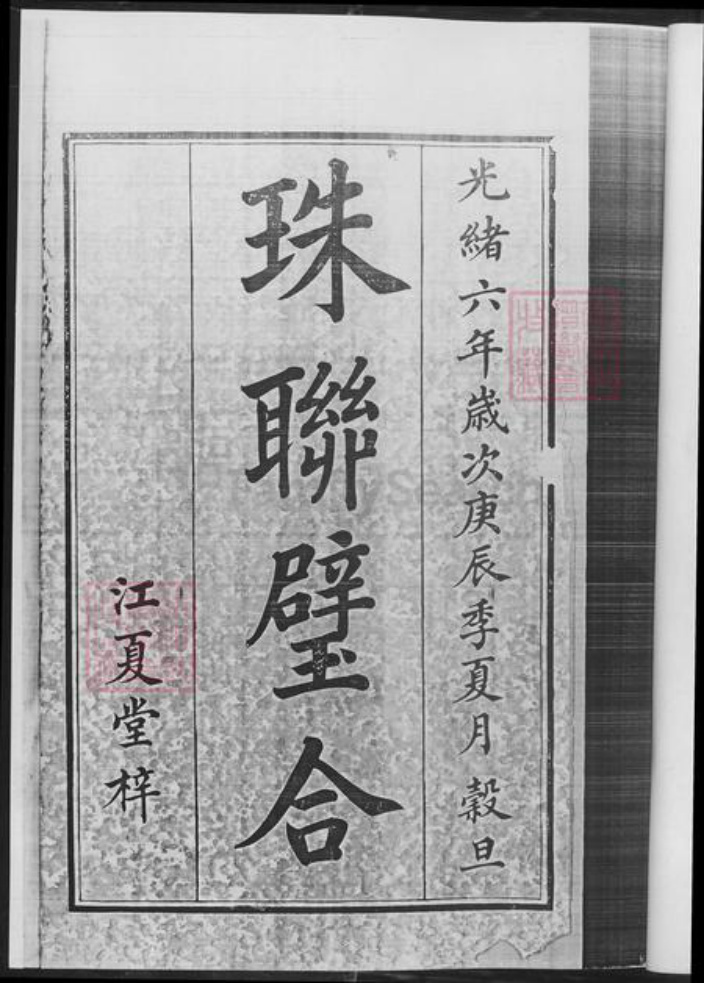 光緒六年歲次庚辰季夏月 穀旦
珠聯璧合
江夏堂梓